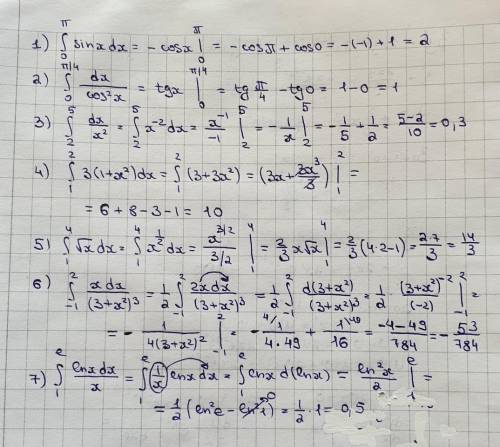 1) ∫₀^π sinx dx = -cosx |₀^π = -cosπ + cos0 = -(-1) + 1 = 2
2) ∫₀^(π/4) dx/cos²x = tgx |₀^(π/4) = tg π/4 - tg0 = 1-0 = 1
3) ∫₂⁵ dx/x² = ∫₂⁵ x⁻² dx = x⁻¹/-1 |₂⁵ = -1/x |₂⁵ = -1/5 + 1/2 = (5-2)/10 = 0,3
4) ∫₁² 3(1+x²)dx = ∫₁² (3+3x²) = (3x + 3x³/3) |₁² =
= 6 + 8 - 3 - 1 = 10
5) ∫₁⁴ √x dx = ∫₁⁴ x^(1/2) dx = x^(3/2)/(3/2) |₁⁴ = 2/3 x√x |₁⁴ = 2/3 (4·2-1) = 2·7/3 = 14/3
6) ∫₋₁² x dx/(3+x²)³ = 1/2 ∫₋₁² 2x dx/(3+x²)³ = 1/2 ∫₋₁² d(3+x²)/(3+x²)³ = 1/2 (3+x²)⁻²/(-2) |₋₁² =
= - 1/(4(3+x²)²) |₋₁² = - 4/ 1/(4·49) + 1 /49 /16 = (-4-49)/784 = - 53/784
7) ∫₁^e lnx dx/x = ∫₁^e (1/x) lnx dx = ∫₁^e lnx d(lnx) = ln²x/2 |₁^e =
= 1/2 (ln²e - ln²1 0) = 1/2 · 1 = 0,5